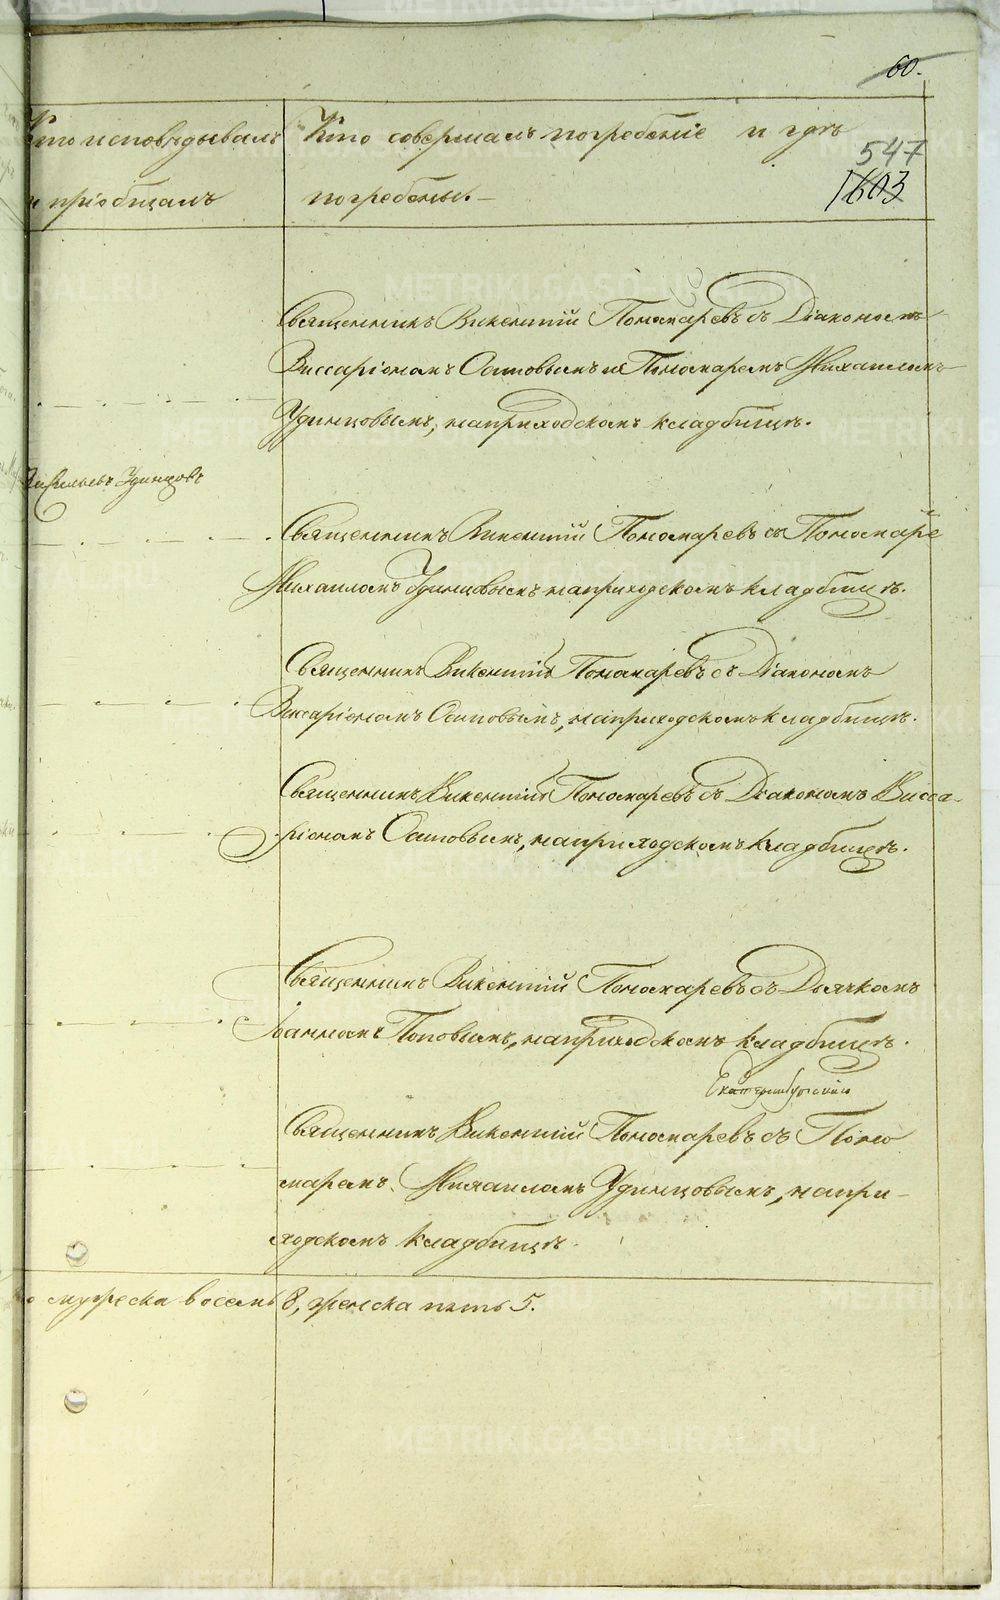 60.
Кто исповѣдывалъ
и пріобщалъ
Кто совершалъ погребеніе и гдѣ
погребены.
547
1603
Священникъ Викентій Пономаревъ съ Діакономъ
Виссаріономъ Осиповымъ и Пономаремъ Михаиломъ
Удинцовымъ, на приходскомъ кладбищѣ.
Васильевъ Удинцовъ
Священникъ Викентій Пономаревъ съ Пономаре
Михаиломъ Удинцовымъ на приходскомъ кладбищѣ.
Священникъ Викентій Пономаревъ съ Діакономъ
Виссаріономъ Осиповымъ, на приходскомъ кладбищѣ.
Священникъ Викентій Пономаревъ съ Діакономъ Висса-
ріономъ Осиповымъ, на приходскомъ кладбищѣ.
Священникъ Викентій Пономаревъ съ Дьячкомъ
Іоанномъ Поповымъ, на приходскомъ кладбищѣ.
Екатеринбургскій
Священникъ Викентій Пономаревъ съ Поно
маремъ Михаиломъ Удинцовымъ, на при-
ходскомъ кладбищѣ.
мужеска восемь 8, женска пять 5.
METRIKI.GASO-URAL.RU